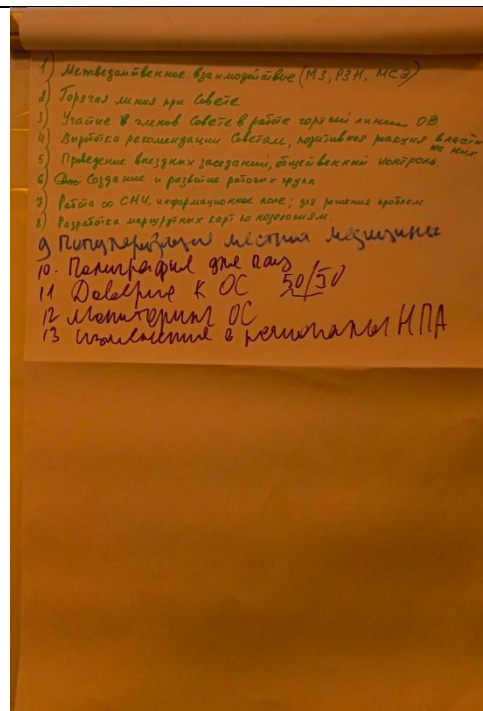 1) Межведомственное взаимодействие (МЗ, РЗН, МСЭ)
2) Горячая линия при Совете
3) Участие членов Совета в работе горячей линии ОВ
4) Выработка рекомендации Советам, позитивная реакция власти на них
5) Проведение выездных заседаний, общественный контроль
6) Создание и развитие рабочих групп
7) Работа со СМИ, информационное поле; для решения проблем.
8) Разработка маршрутных карт по нозологиям.
9 Популяризация местной медицины
10. Полиграфия для пац
11 Доверие к ОС 50/50
12 Мониторинг ОС
13 изменения в региональн НПА